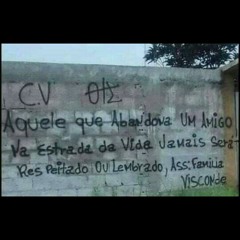 C.V
Aquele que Abandova UM AMIGO
Na Estrada da Vida Jamais Será
Respeitado Ou Lembrado, Ass: Familia
Visconde